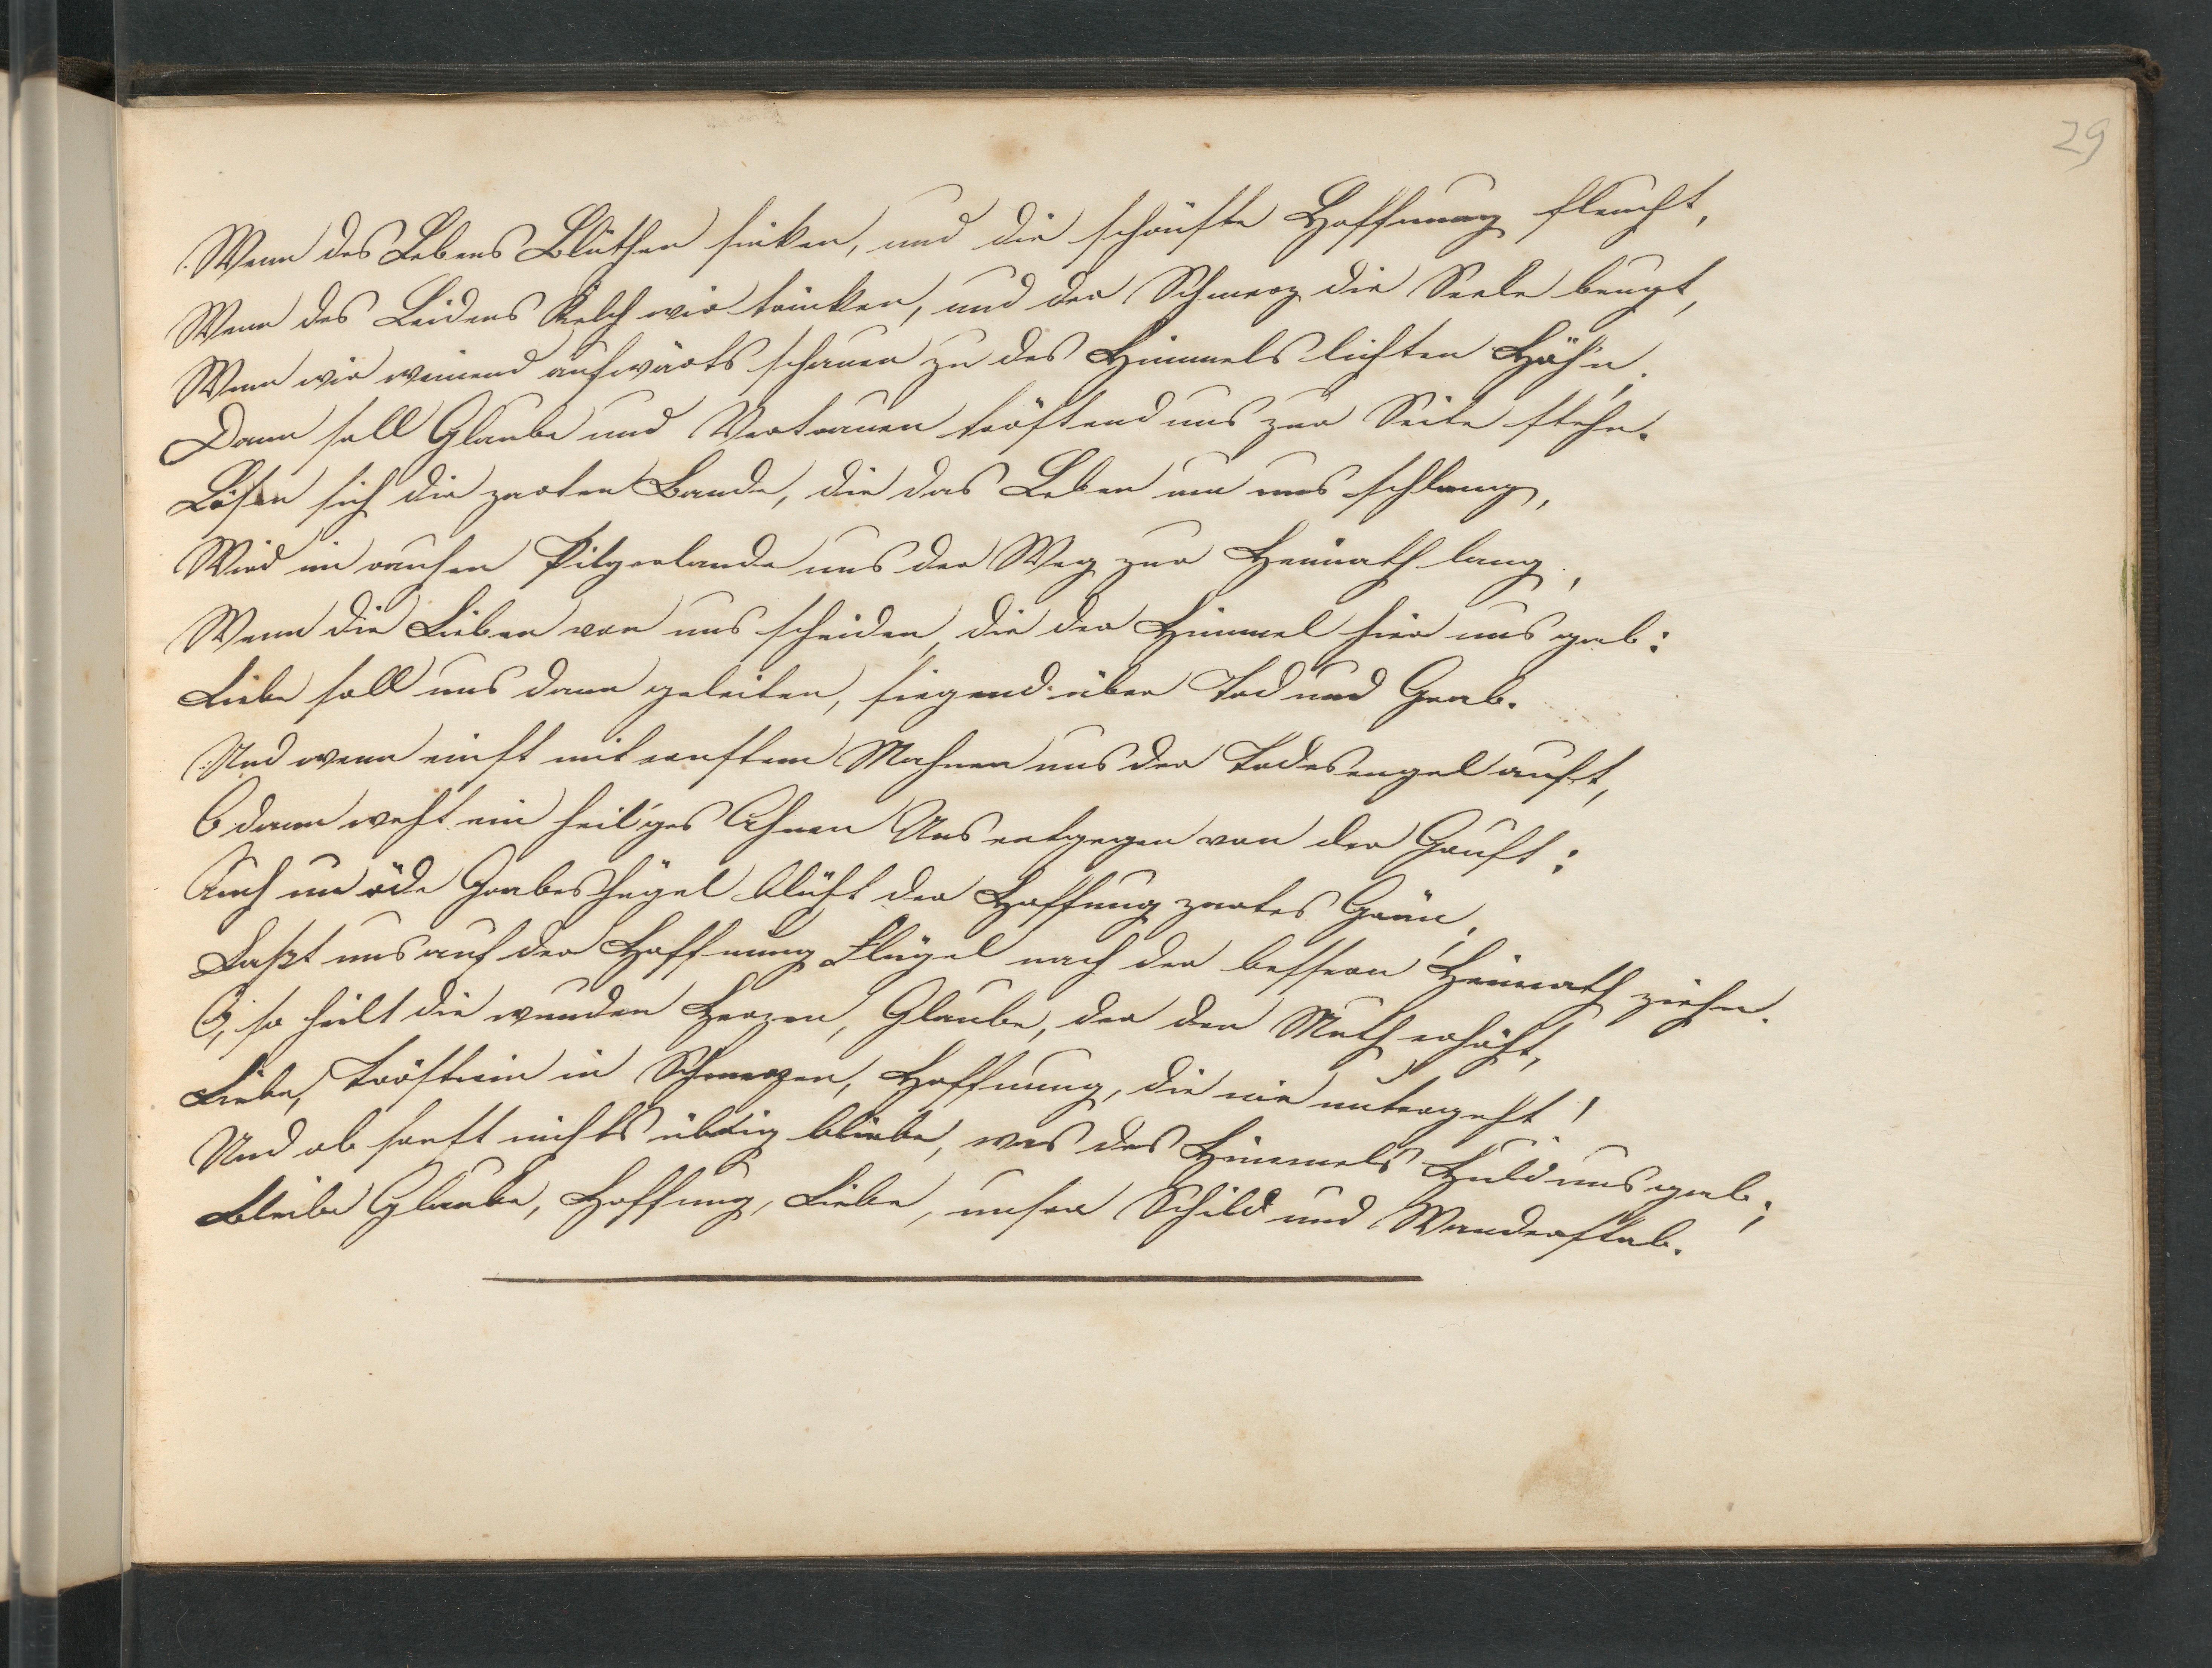 29
Wenn des Lebens Blüthen sinken, und die schönste Hoffnung fleucht,
Wenn des Leidens Kelch wir trinken, und der Schmerz die Seele beugt,
Wenn wir weinend aufwärts schauen zu des Himmels lichten Höh'n,
Dann soll Glaube und Vertrauen tröstend uns zur Seite stehn.
Lösen sich die zarten Bande, die das Leben um uns schlang,
Wird im rauhen Pilgerlande uns der Weg zur Heimath lang,
Wenn die Lieben von uns scheiden, die der Himmel hier uns gab:
Liebe soll uns dann geleiten, siegend über Tod und Grab.
Und wenn einst mit ernstem Mahnen uns der Todesengel ruft,
O dann weht ein heil'ges Ahnen Uns entgegen von der Gruft:
Auch um öde Grabeshügel blüht der Hoffung zartes Grün,
Laßt uns auf der Hoffnung Flügel nach der bessern Heimath ziehn.
O, so heilt die wunden Herzen, Glaube, der den Muth erhöht,
Liebe, Trösterin in Schmerzen, Hoffnung, die nie untergeht!
Und ob sonst nichts übrig bliebe, was des Himmels Huld uns gab;
Bleibe Glaube, Hoffung, Liebe, unser Schild und Wanderstab.